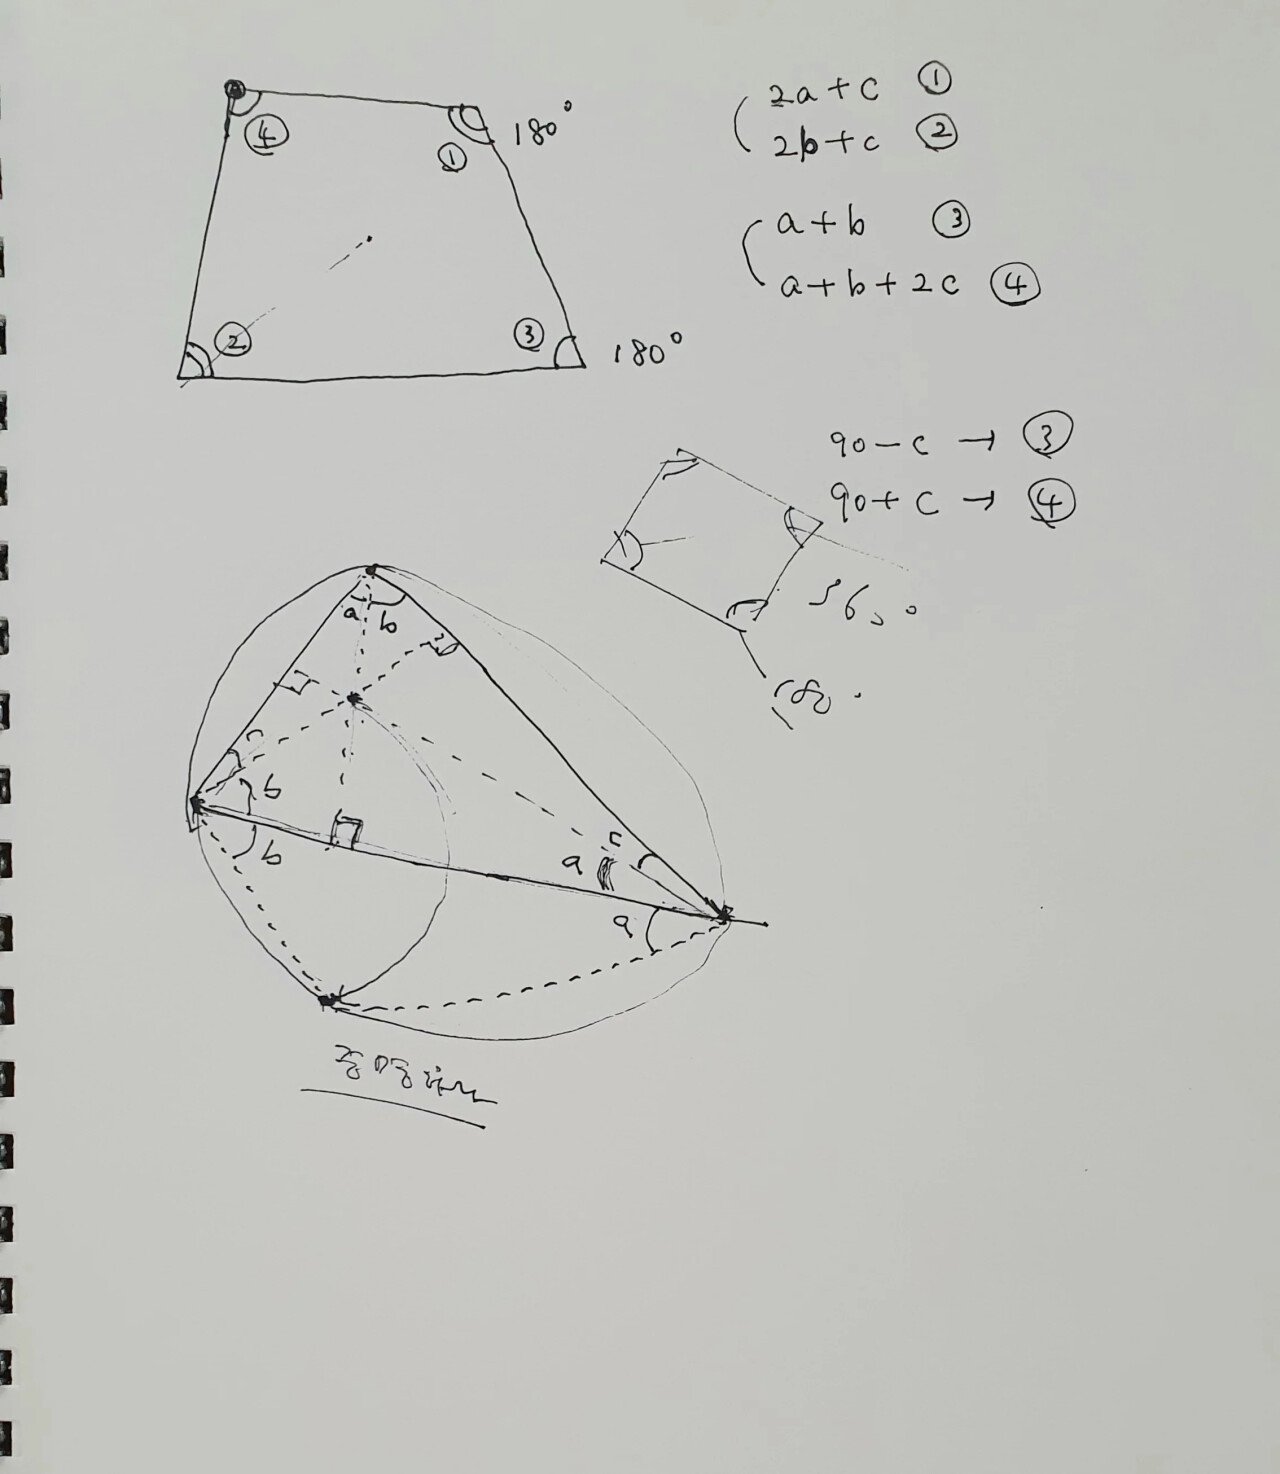 ④
①
180°
②
③
180°
2a+c ①
2b+c ②
a+b ③
a+b+2c ④
90-c → ③
90+c → ④
a b
c
b
b
c
a
a